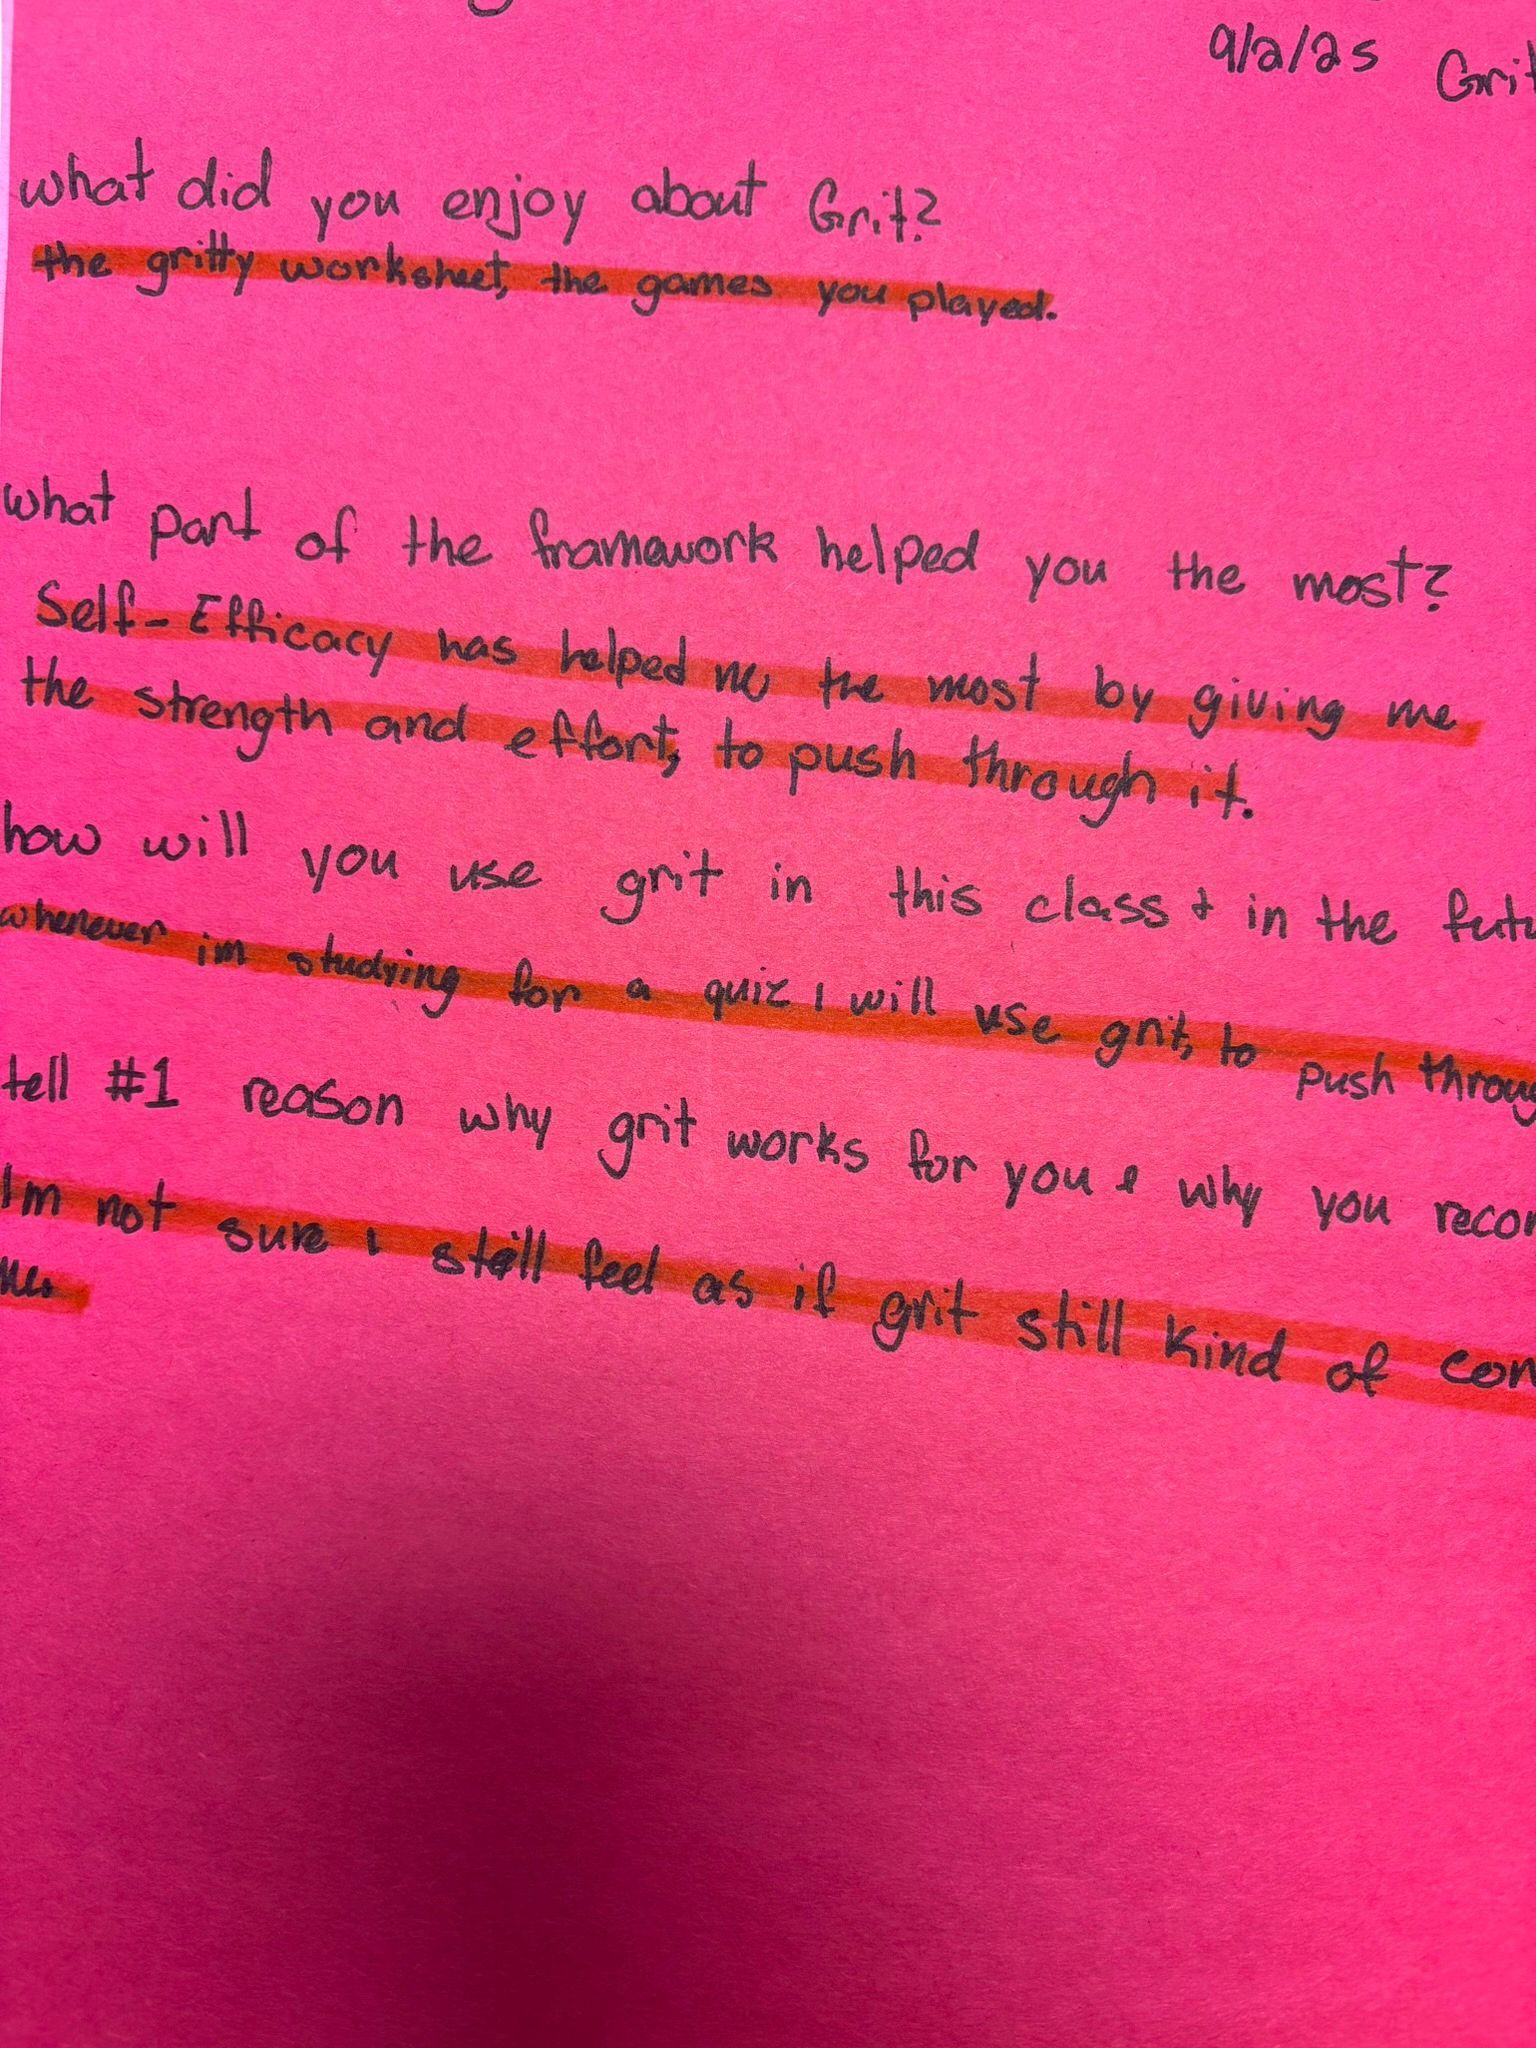 9/2/25 Grit
what did you enjoy about Grit?
the gritty worksheet, the games you played.
what part of the framework helped you the most?
Self-Efficacy has helped me the most by giving me
the strength and effort, to push through it.
how will you use grit in this class & in the futu
whenever im studying for a quiz i will use grit, to push throug
tell #1 reason why grit works for you & why you recom
Im not sure i still feel as if grit still kind of con
me.